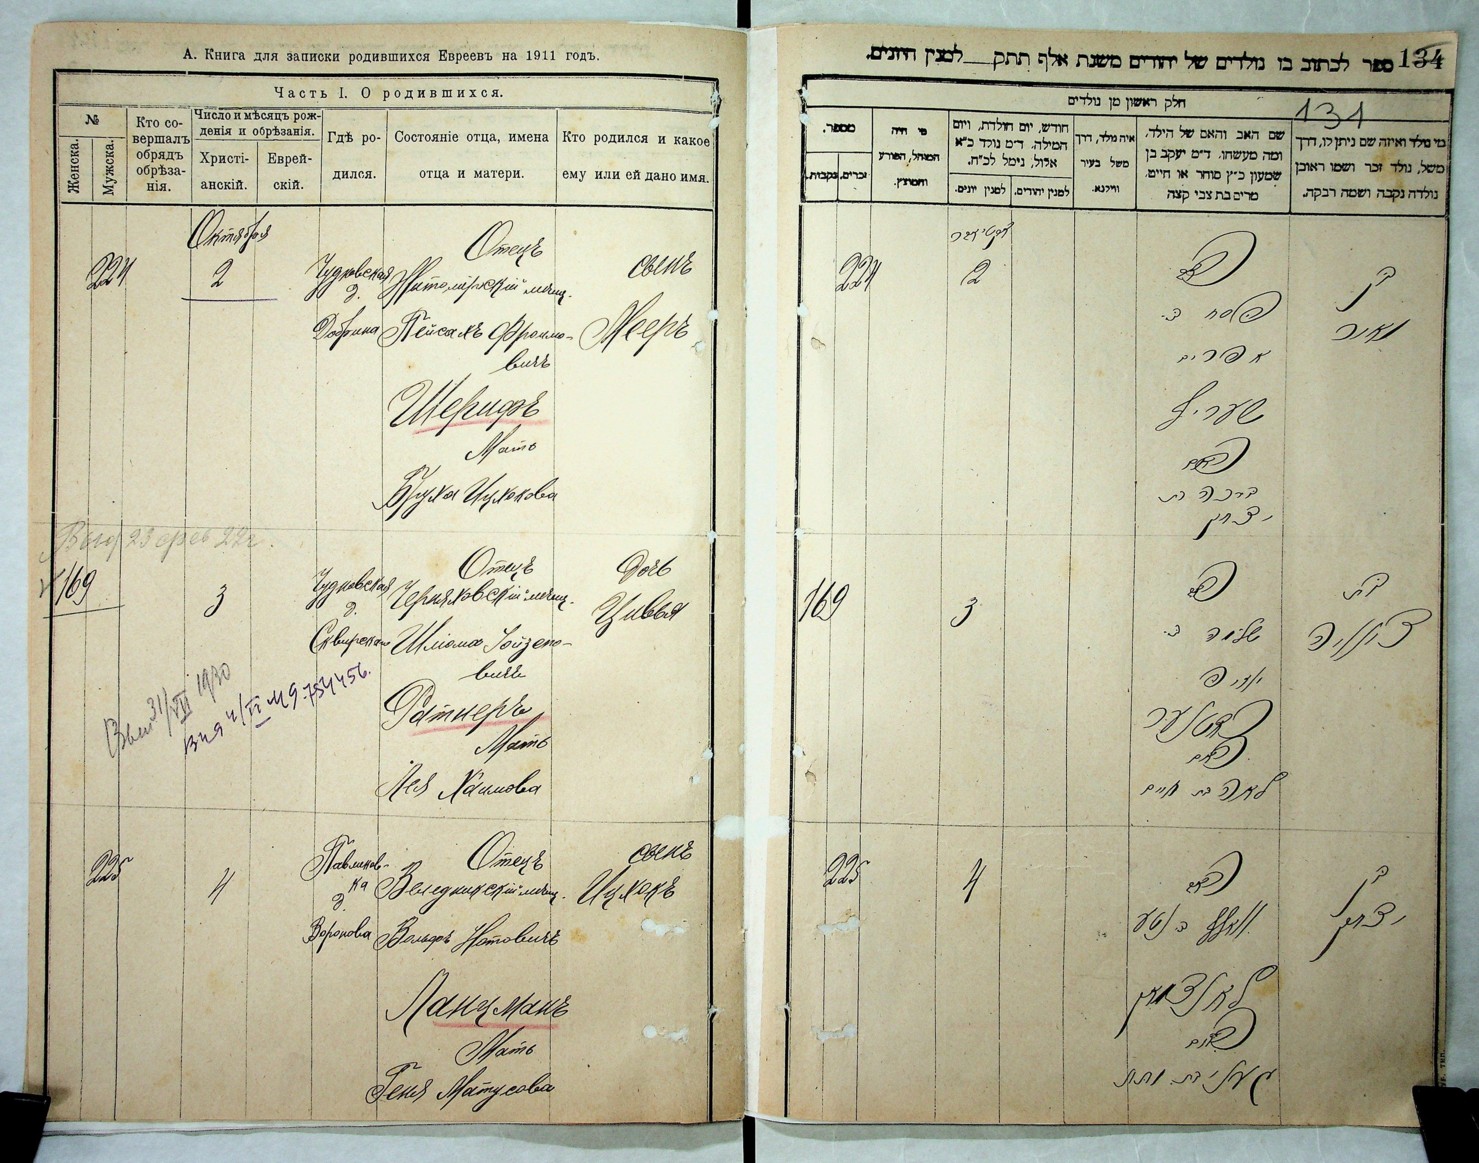 А. Книга для записки родившихся Евреевъ на 1911 годъ.
Часть I. О родившихся.
№
Женска.
Мужска.
Кто со-
вершалъ
обрядъ
обрѣза-
нія.
Число и мѣсяцъ рож-
денія и обрѣзанія.
Христі-
анскій.
Еврей-
скій.
Гдѣ ро-
дился.
Состояніе отца, имена
отца и матери.
Кто родился и какое
ему или ей дано имя.
Октября
224
2
Чудновская
д.
Добрина
Отецъ
Житомірскій мѣщ.
Пейсахъ Фроимо-
вичъ
Шерифъ
Мать
Бруха Ицкокова
сынъ
Мееръ
169
3
Чудновская
д.
Отецъ
Черняховскій мѣщ.
Шлома Іойзепо-
вичъ
Ратнеръ
Мать
Лея Хаимова
Дочь
Цивья
31/VII 1930
225
4
Павликов-
ка
д.
Воронова
Отецъ
Веледникскій мѣщ.
Вольфъ Нотовичъ
Ланцманъ
Мать
Геня Матусова
сынъ
Ицхокъ
ספר לכתוב בו נולדים של יהודים משנת אלף תתק למנין היונים.
134
131
חלק ראשון מן נולדים
מספר.
זכרים.
נקבות.
מי היה
המוהל, הפורע
והמוצץ.
חודש, יום חולדת, ויום
המילה. ד״מ נולד כ״א
אלול, נימל לכ״ח.
למנין יונים.
למנין יהודים.
איה נולד, דרך
משל בעיר
ווילנא.
שם האב והאם של הילד,
ומה מעשהו. ד״מ יעקב בן
שמעון כ״ץ סוחר או חיים,
מרים בת צבי קצה
מי נולד ואיזה שם ניתן לו, דרך
משל, נולד זכר ושמו ראובן
נולדה נקבה ושמה רבקה.
224
2
האב
פסח ב.
אפרים
שעריף
האם
ברכה בת
יצחק
בן
מאיר
169
3
האב
שלמה ב.
ראטנער
האם
לאה בת חיים
בת
ציוויה
225
4
האב
וואלף ב נטע
לאנצמאן
האם
בן
יצחק